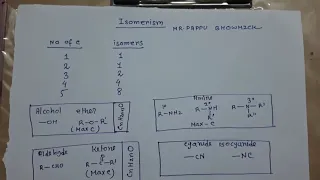 Isomerism
MR. PAPPU BHOWMICK
No of c isomers
1 1
2 1
3 2
4 4
5 8
Alcohol ether
—OH R—O—R'
(Max C)
CnH2n+2O
Amine
1° 2° 3°
R—NH2 R—NH R—N—R'
R' R''
Max—C
Aldehyde Ketone
R—CHO R—C—R'
O
(Max C)
CnH2nO
Cyanide isocyanide
—CN —NC